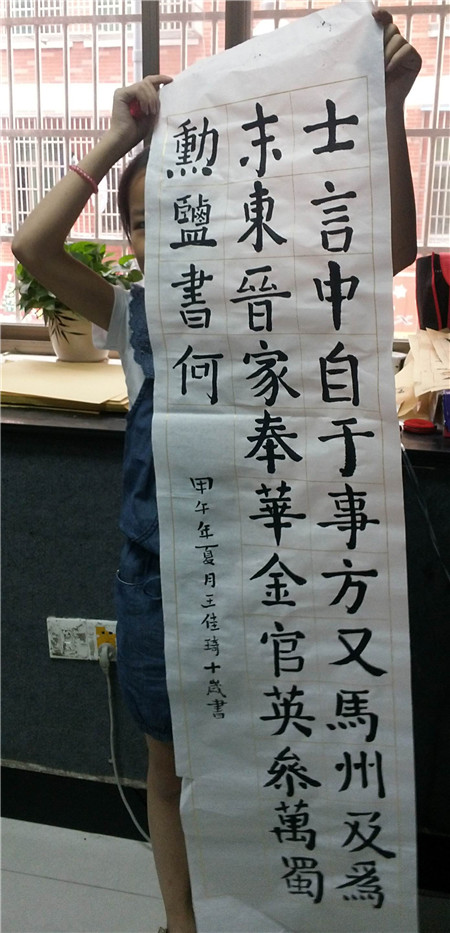 士言申自于事方又馬州及爲
末東晉家奉華金官英叅萬蜀
勲鹽書何
甲午年夏月王佳琦十歲書